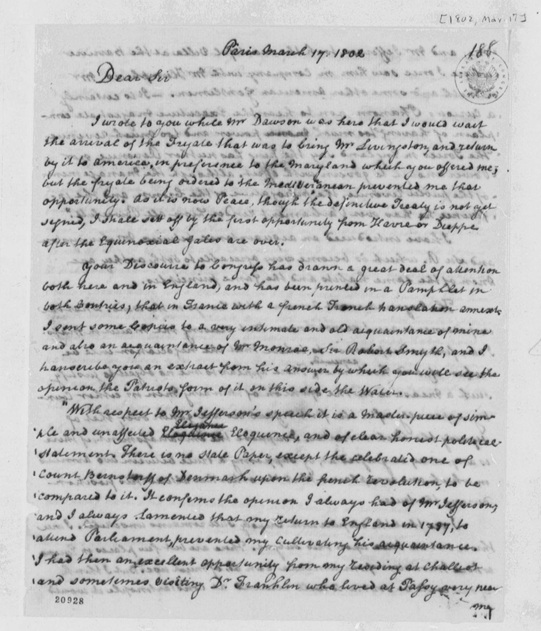 [1802, Mar. 17]
188
Paris March 17 1802
Dear Sir
I wrote to you while Mr Dawson was here that I would wait
the arrival of the frigate that was to bring Mr Livingston, and return
by it to america, in preference to the Maryland which you offered me;
but the frigate being ordered to the Mediteranean prevented me that
opportunity. As it is now Peace, though the definitive Treaty is not yet
signed, I shall set off by the first opportunity from Havre or Dieppe
after the Equinoxial gales are over.
Your Discourse to Congress has drawn a great deal of attention
both here and in England, and has been printed in a Pamphlet in
both Countries, that in France with a french translation annexed.
I sent some Copies to a very intimate and old acquaintance of mine
and also an acquaintance of Mr Monroe, Sir Robert Smyth, and I
transcribe you an extract from his answer by which you will see the
opinion the Patriots form of it on this side the Water.
"With respect to Mr Jefferson's speech it is a Master-piece of sim-
ple and unaffected Eloquence, and of clear honest political
statement. There is no state Paper, except the celebrated one of
Count Bernstorff of Denmark upon the french revolution, to be
compared to it. It confirms the opinion I always had of Mr Jefferson,
and I always lamented that my return to England in 1787, to
attend Parliament, prevented my Cultivating his acquaintance.
I had then an excellent opportunity from my residing at Challiot
and sometimes visiting Dr Franklin who lived at Passy very near
me
20928